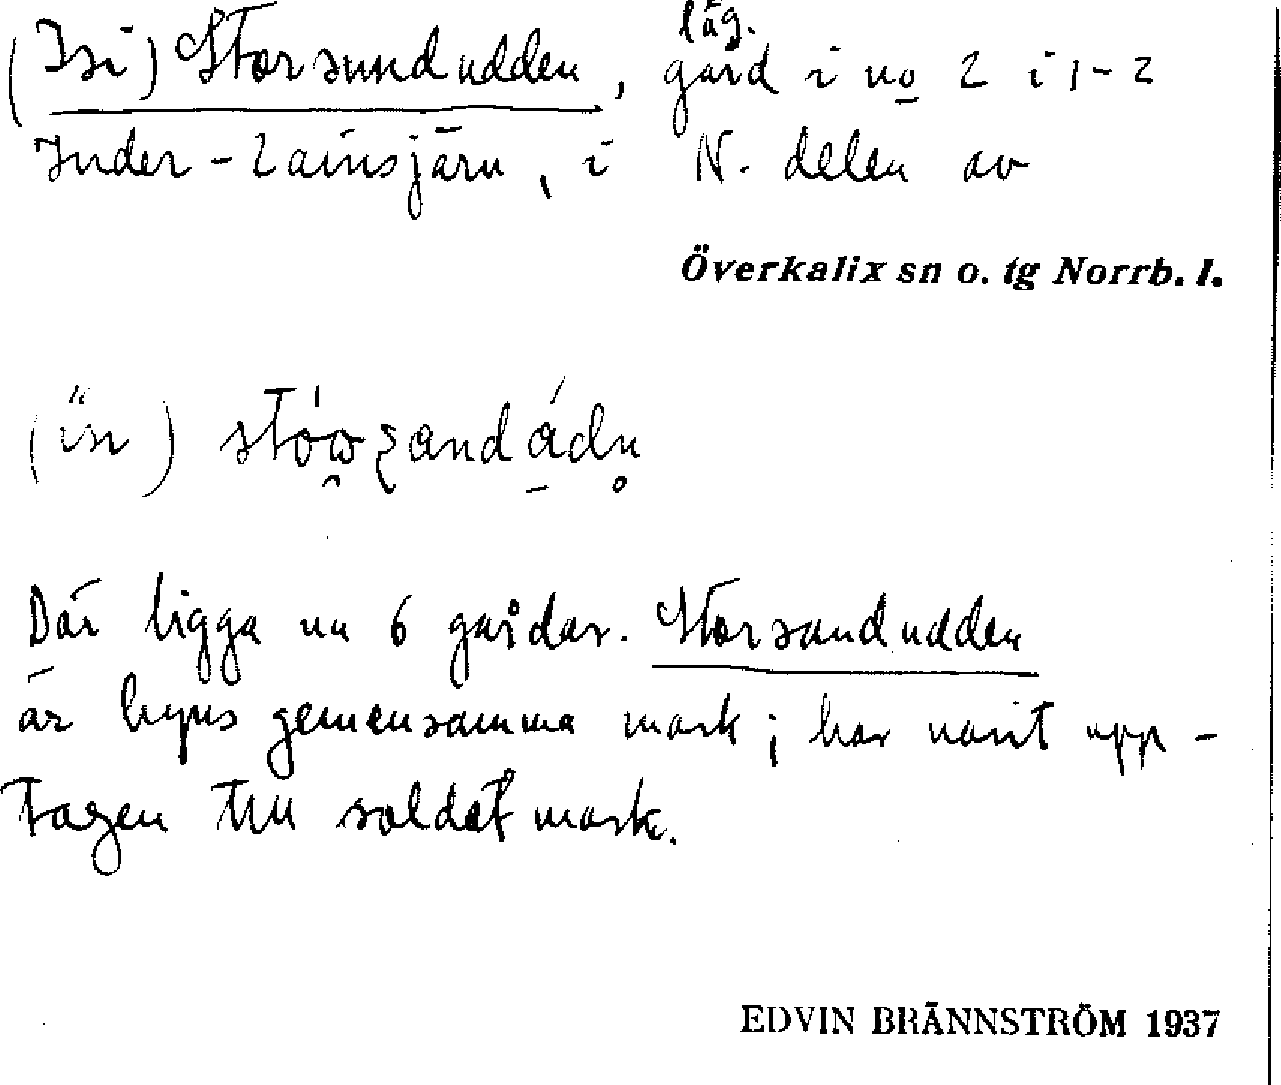 (Isi) Storsundudden, gård i no 2 i 1-2
läg.
Inder-Lainsjärv, i N. delen av
Överkalix sn o. tg Norrb. l.
(ïsı)
Där ligga nu 6 gårdar. Storsandudden
är byns gemensamma mark; har varit upp-
tagen till soldatmark.
EDVIN BRÄNNSTRÖM 1937